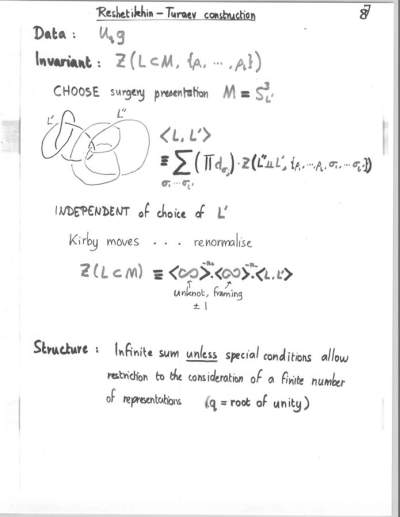 Reshetikhin - Turaev construction
87
Data : U_q g
Invariant : Z(L⊂M, {ρ, ⋯, ρ_l})
CHOOSE surgery presentation M = S³_L'
L' L''
⟨L, L'⟩
≡ ∑ (∏ d_σ) · Z(L''⊔L', {ρ, ⋯, ρ, σ, ⋯ σ})
σ ⋯ σ
INDEPENDENT of choice of L'
Kirby moves . . . renormalise
Z(L⊂M) ≡ ⟨∞⟩ · ⟨∞⟩ · ⟨L, L'⟩
unknot, framing
± 1
Structure : Infinite sum unless special conditions allow
restriction to the consideration of a finite number
of representations (q = root of unity)